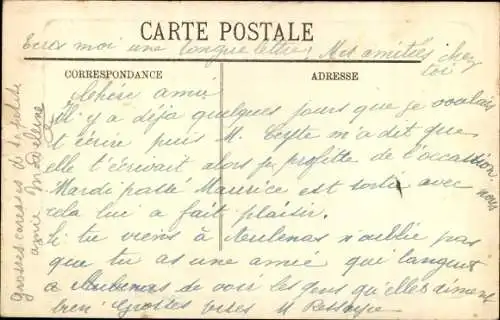 CARTE POSTALE
Ecris moi une longue lettre, Mes amitiés chez
toi
CORRESPONDANCE
ADRESSE
chère amie
Il y a déja quelques jours que je voulais
t écrire puis M. m'a dit que
elle t'écrivait alors je profitte de l'occassion
Mardi passé Maurice est sortie avec
nous
cela lui a fait plaisir.
Si tu viens à n'oublie pas
que tu as une amiée qui languit
a de voir les gens qu'elles aiment
bien Grosses bises M
grosses caresses de ta petite
amie Madeleine